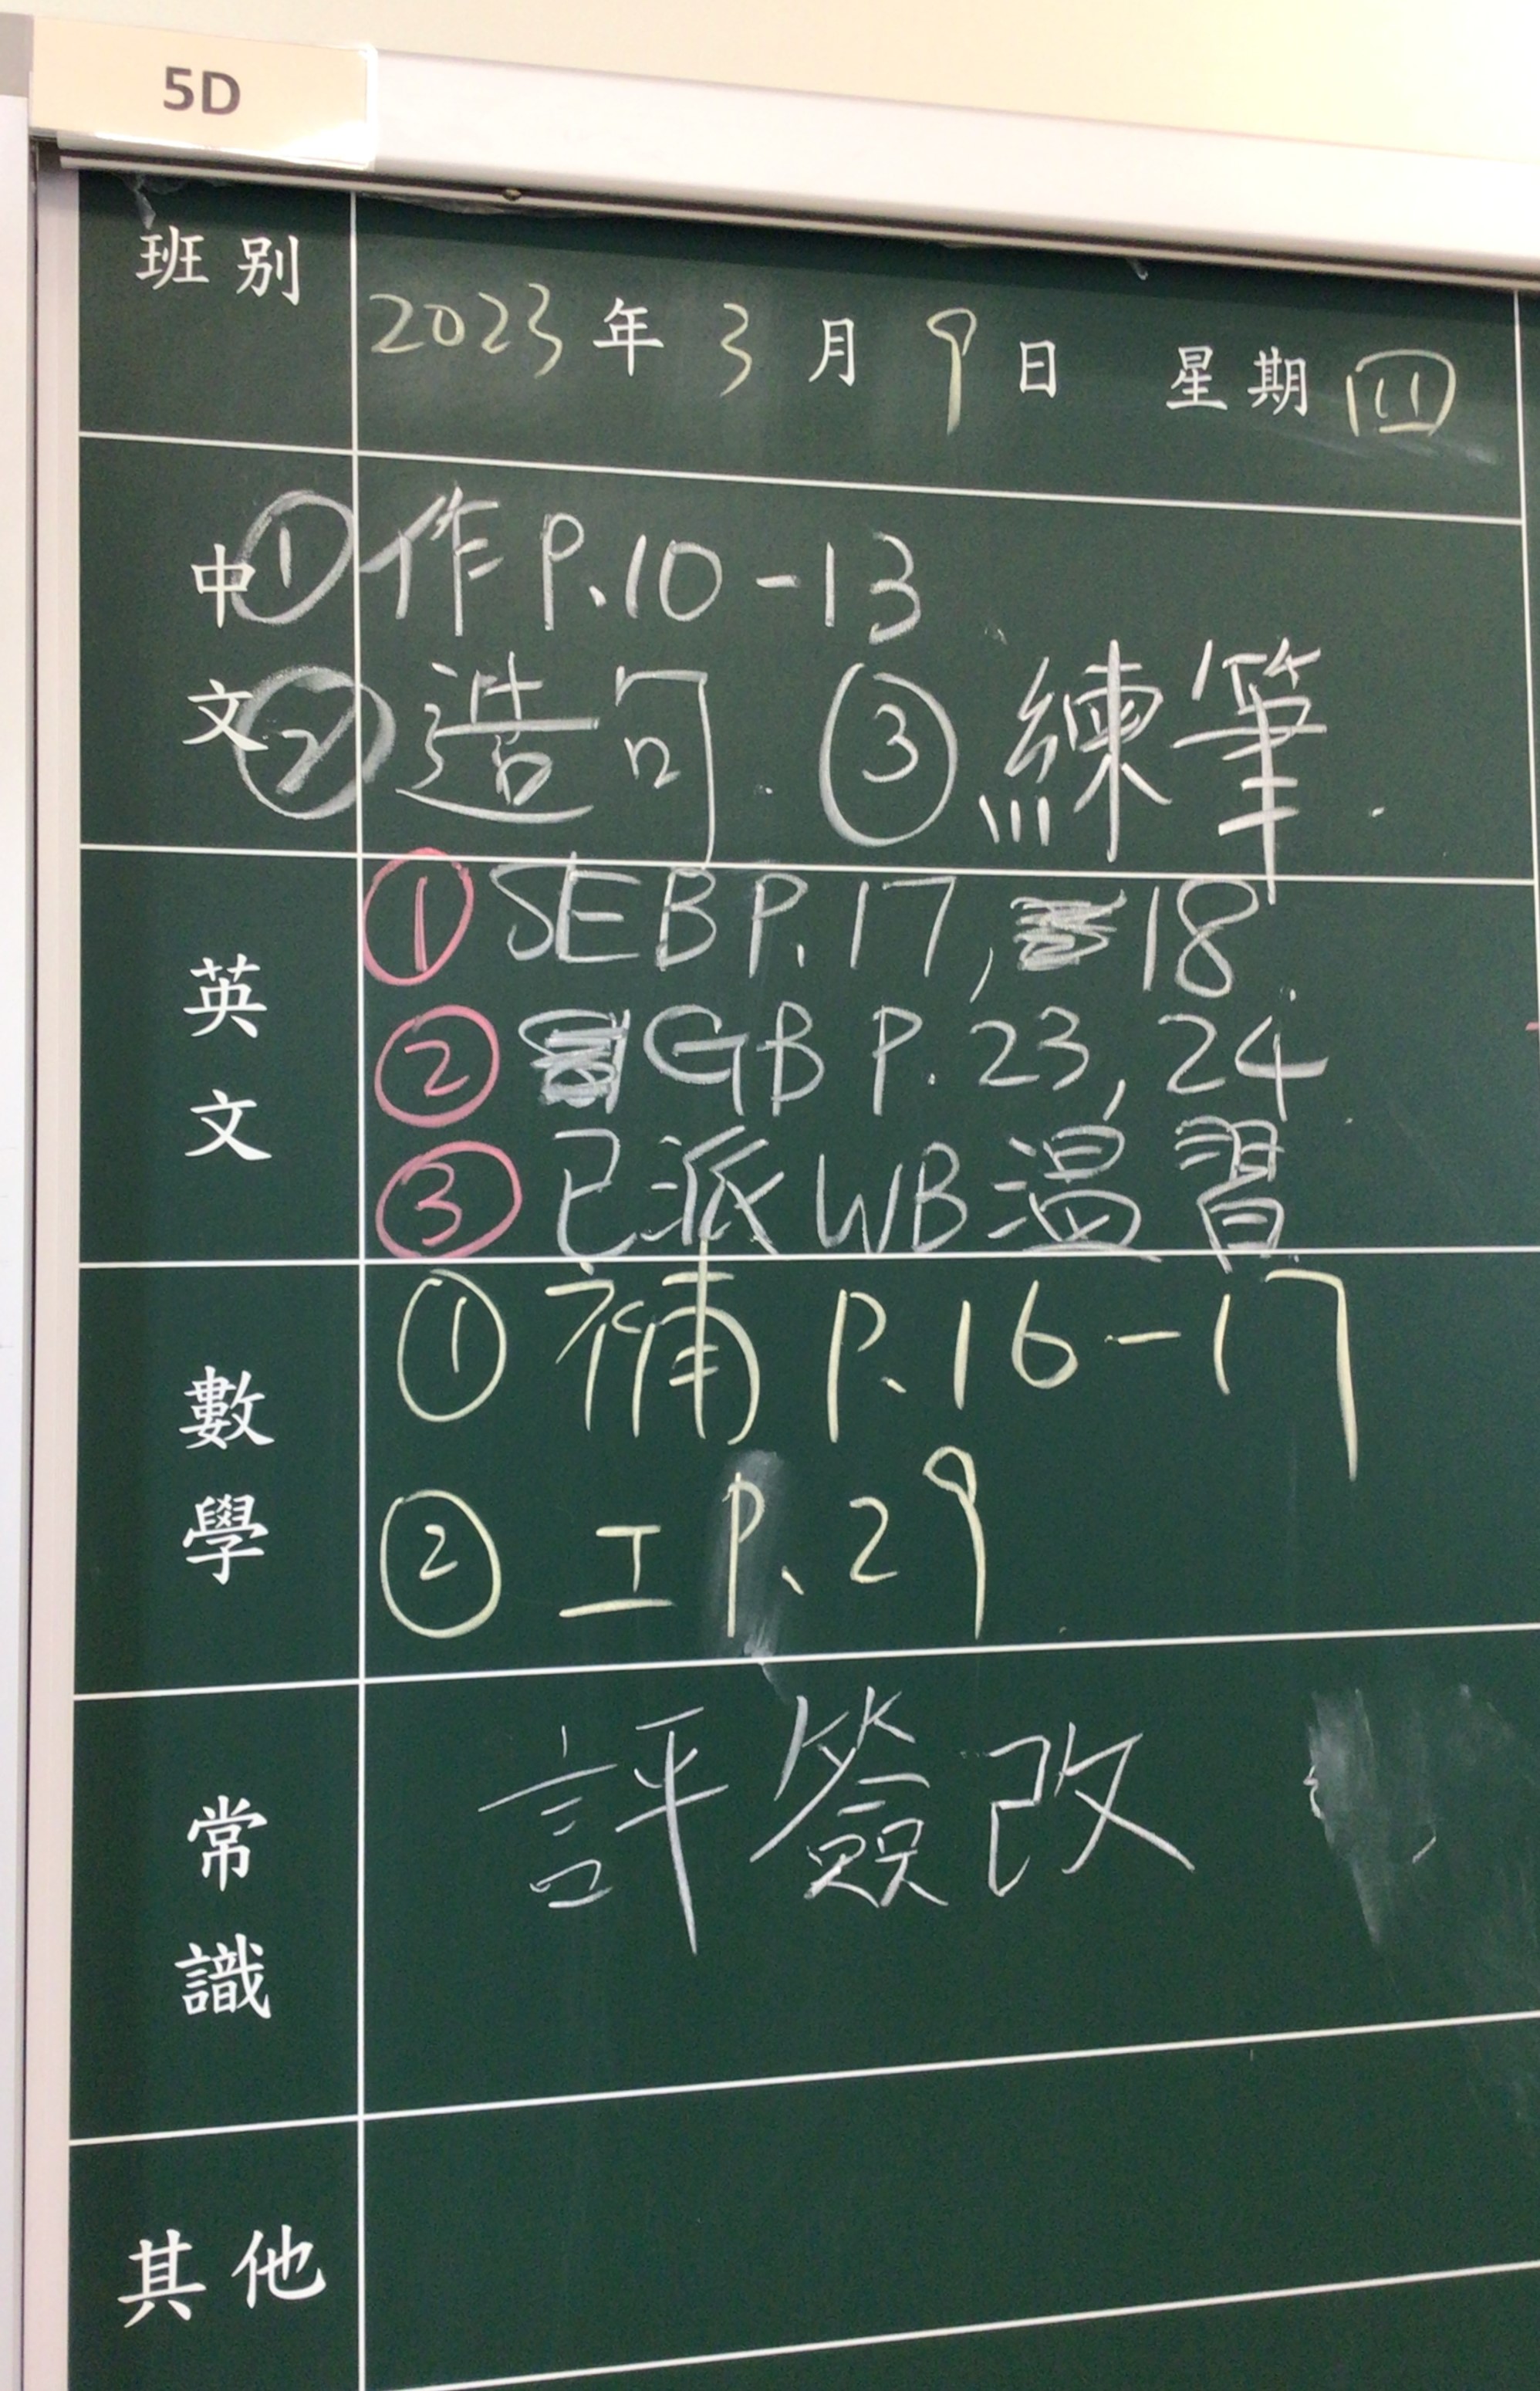 5D
班別 2023年3月9日 星期四
中文 ①作P.10-13
②造句. ③練筆.
英文 ①SEB P.17, 18.
②GB P.23, 24
③已派WB温習
數學 ①補 P.16-17
②工 P.29
常識 評簽改
其他